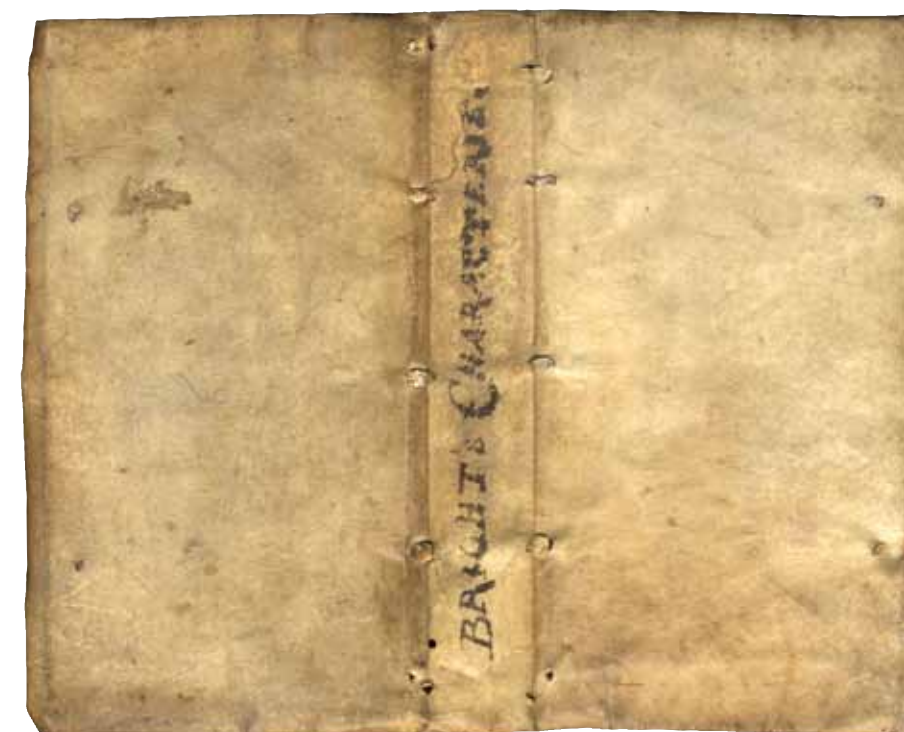 BRIGHT'S CHARACTERIE.